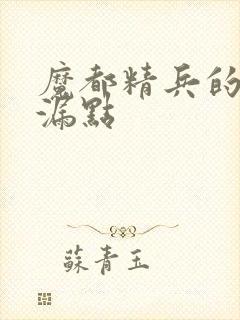 魔都精兵的
漏點
蘇青玉